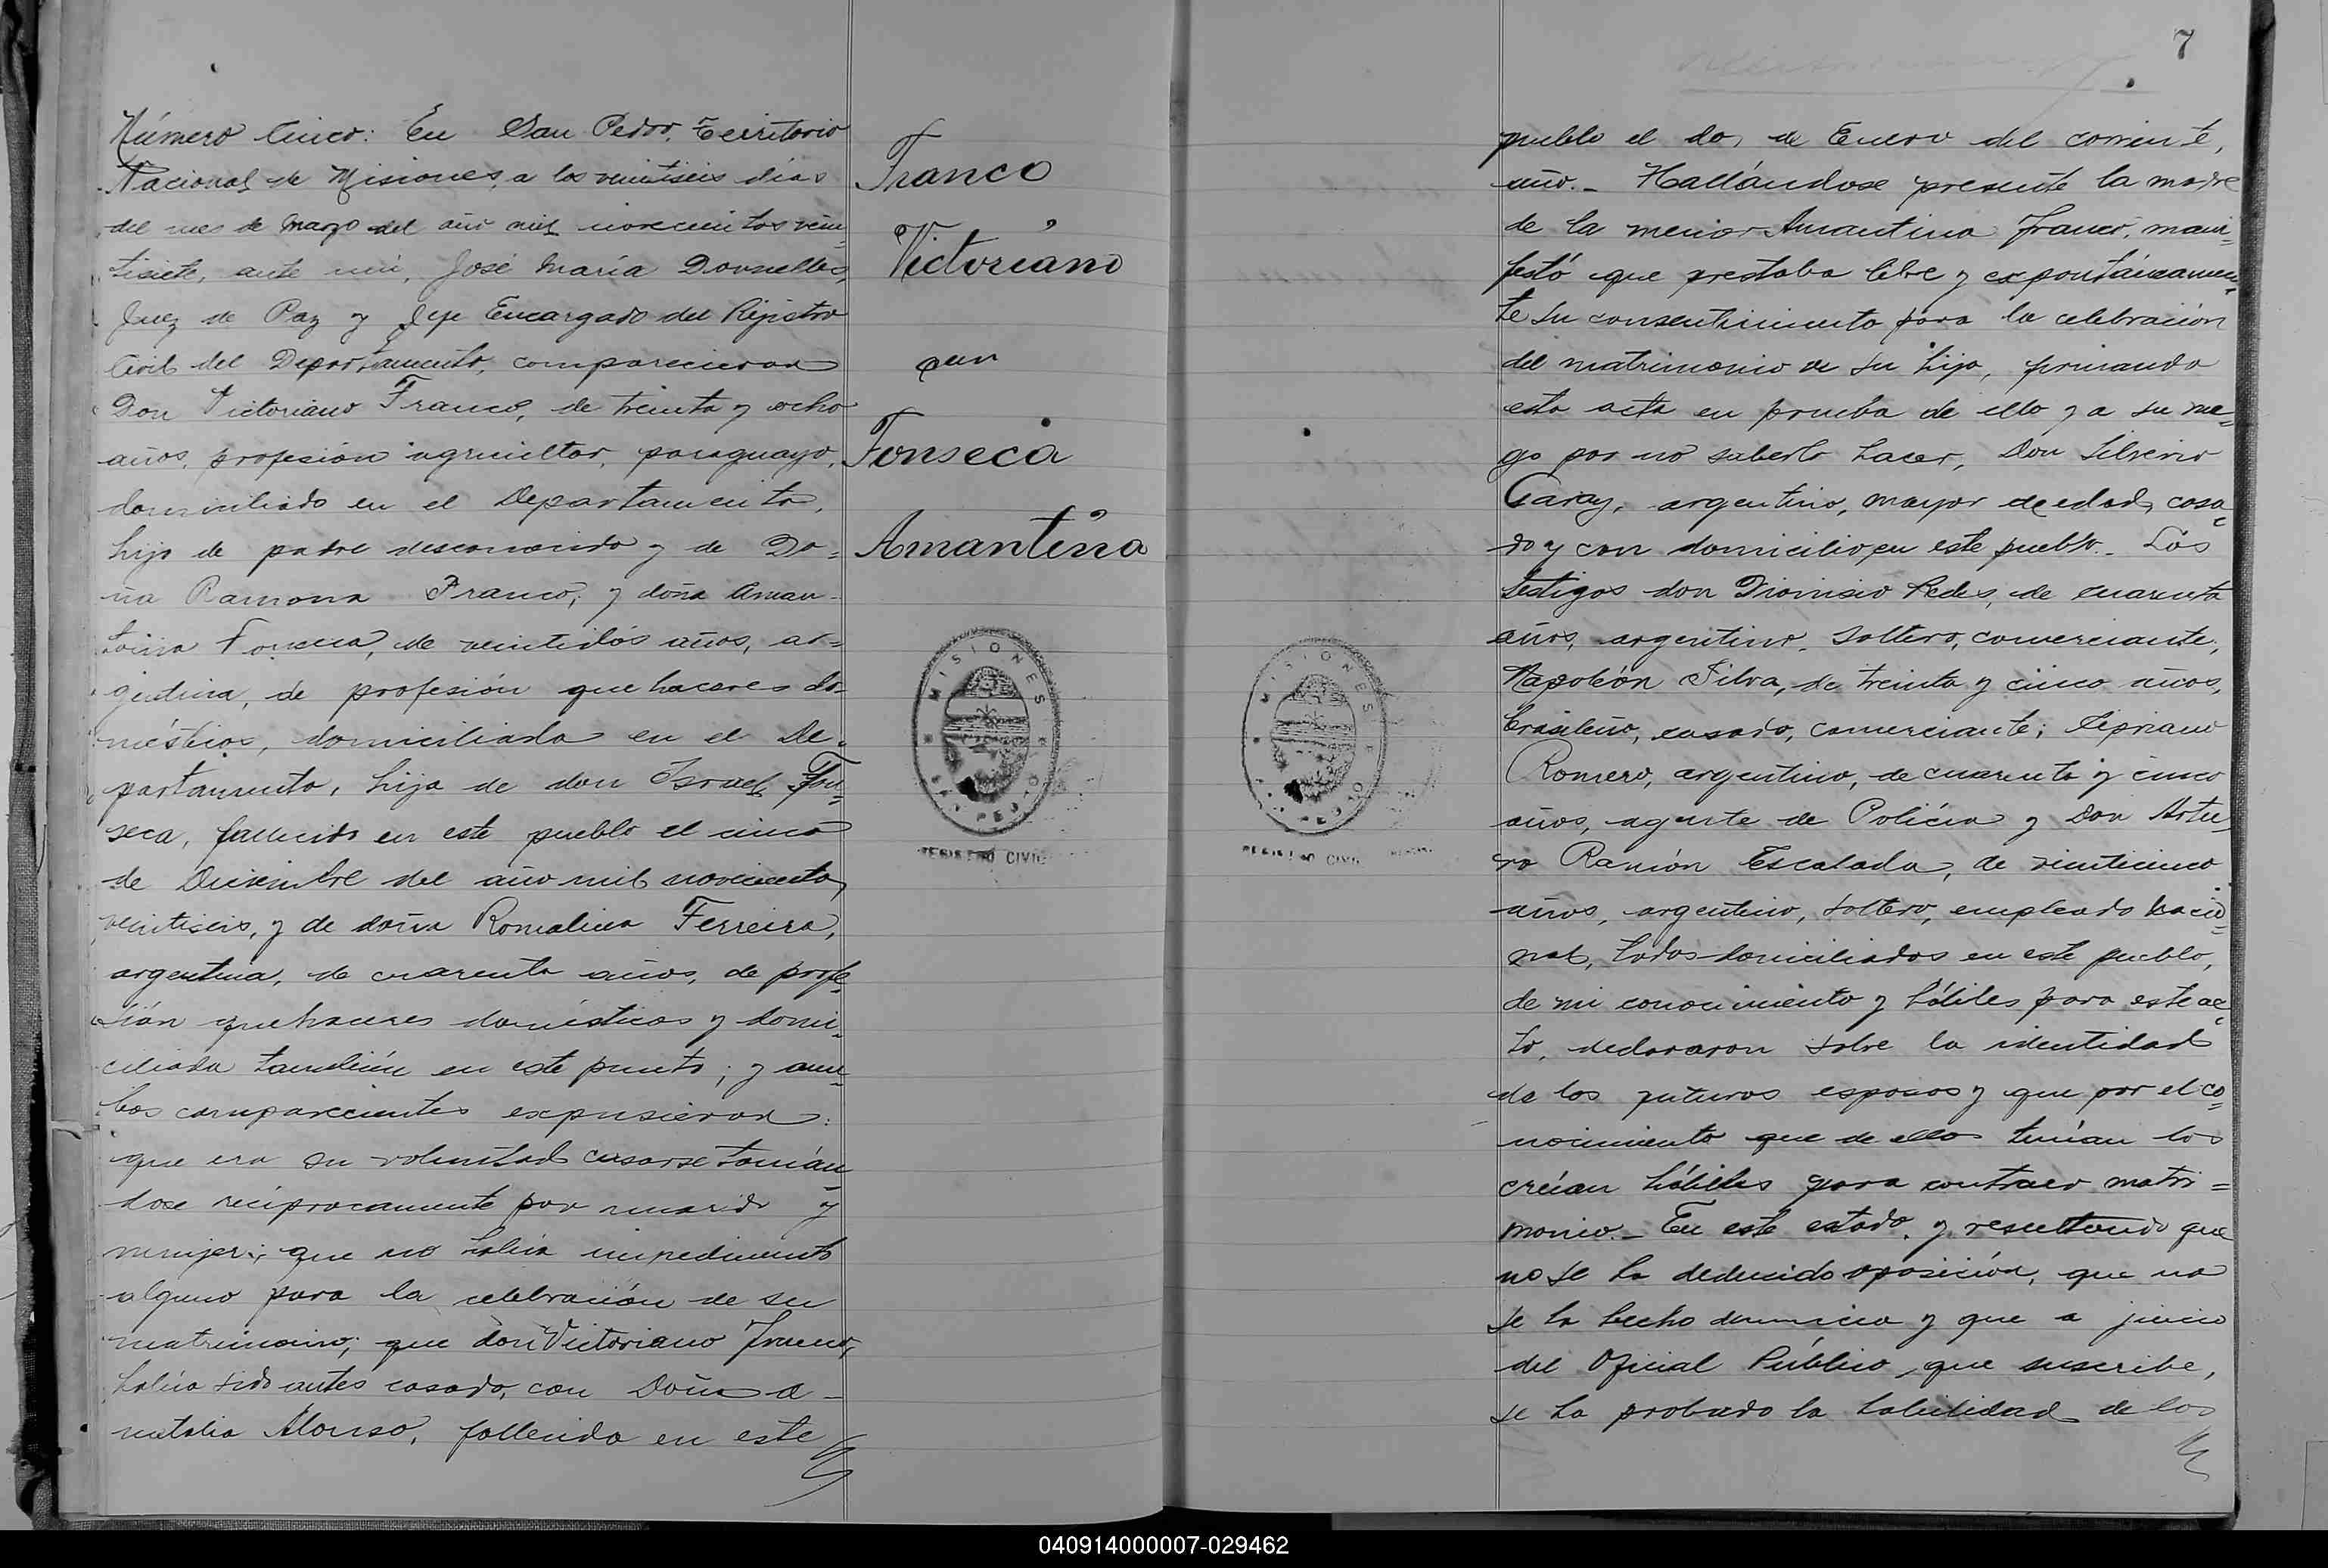 Número Cinco: En San Pedro, Territorio
Nacional de Misiones, a los veintiseis días
del mes de Marzo del año mil novecientos vein-
tisiete, ante mi, José María Dornelles,
Juez de Paz y Jefe Encargado del Rejistro
Civil del Departamento, comparecieron
Don Victoriano Franco, de treinta y ocho
años, profesión agricultor, paraguayo,
domiciliado en el Departamento,
hijo de padre desconocido y de Do=
ña Ramona Franco; y doña Aman-
tina Fonseca, de veintidós años, ar=
gentina, de profesión quehaceres do-
mésticos, domiciliada en el De-
partamento, hija de don Israel Fon=
seca, fallecido en este pueblo el cinco
de Diciembre del año mil novecientos
veintiseis, y de doña Romalina Ferreira,
argentina, de cuarenta años, de profe-
sión quehaceres domésticos y domi-
ciliada también en este punto; y am-
bos comparecientes expusieron:
que era su voluntad casarse tomán-
dose recíprocamente por marido y
mujer; que no había impedimento
alguno para la celebración de su
matrimonio; que don Victoriano Franco,
había sido antes casado, con Doña A-
natalia Alonso, fallecida en este
Franco
Victoriano
con
Fonseca
Amantina
MISIONES
SAN PEDRO
REGISTRO CIVIL
7
pueblo el dos de Enero del corriente,
año.- Hallándose presente la madre
de la menor Amantina Franco, mani=
festó que prestaba libre y expontáneamen=
te su consentimiento para la celebración
del matrimonio de su hija, firmando
esta acta en prueba de ello y a su rue=
go por no saberlo hacer, Don Silverio
Garay, argentino, mayor de edad, casa=
do y con domicilio en este pueblo.- Los
testigos don Dionisio Ledes, de cuarenta
años, argentino, soltero, comerciante,
Napoleón Silva, de treinta y cinco años,
brasileño, casado, comerciante; Cipriano
Romero, argentino, de cuarenta y cinco
años, agente de Policía y Don Artu-
ro Ramón Escalada, de veinticinco
años, argentino, soltero, empleado nacio=
nal, todos domiciliados en este pueblo,
de mi conocimiento y hábiles para este ac=
to, declararon sobre la identidad
de los futuros esposos y que por el co=
nocimiento que de ellos tenían los
creían hábiles para contraer matri=
monio.- En este estado, y resultando que
no se ha deducido oposición, que no
se ha hecho denuncia y que a juicio
del Oficial Público que suscribe,
se ha probado la habilidad de los
MISIONES
SAN PEDRO
REGISTRO CIVIL
040914000007-029462